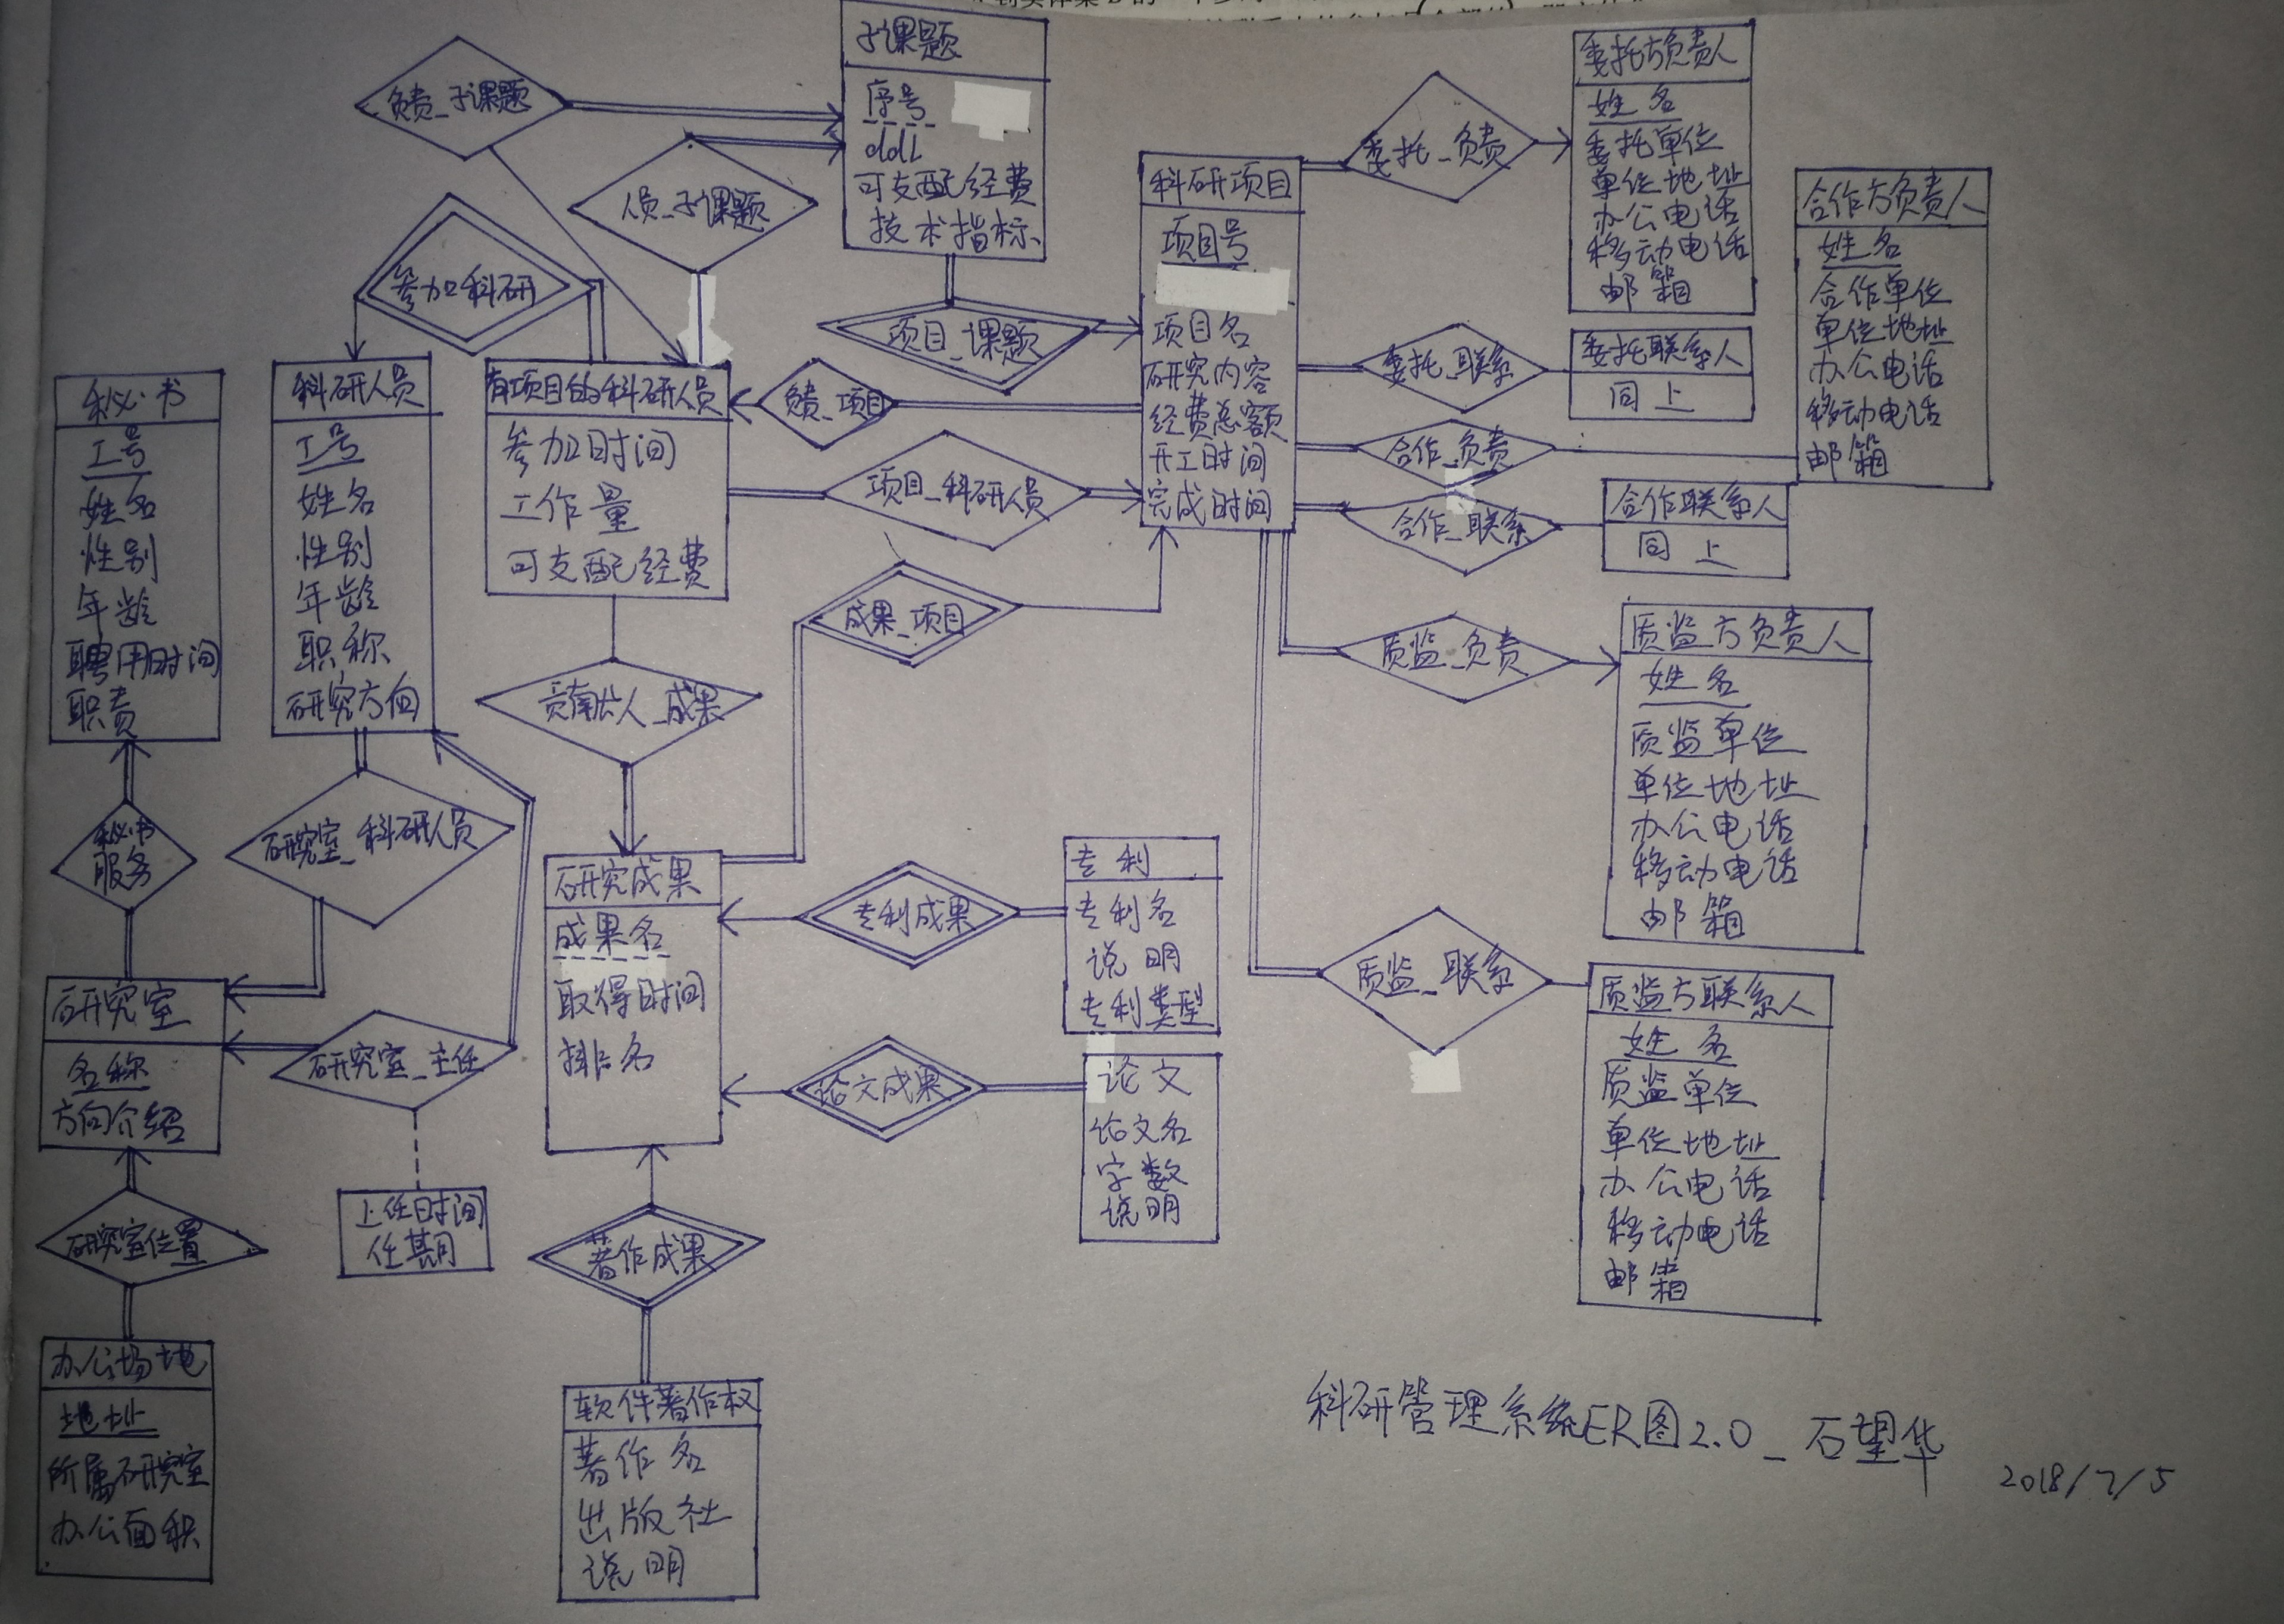 负责_子课题
子课题
序号
ddl
可支配经费
技术指标
人员_子课题
参加科研
项目_课题
科研项目
项目号
项目名
研究内容
经费总额
开工时间
完成时间
委托_负责
委托方负责人
姓名
委托单位
单位地址
办公电话
移动电话
邮箱
合作方负责人
姓名
合作单位
单位地址
办公电话
移动电话
邮箱
委托_联系
委托联系人
同上
合作_负责
合作_联系
合作联系人
同上
秘书
工号
姓名
性别
年龄
聘用时间
职责
科研人员
工号
姓名
性别
年龄
职称
研究方向
有项目的科研人员
参加时间
工作量
可支配经费
负责_项目
项目_科研人员
成果_项目
贡献人_成果
质监_负责
质监方负责人
姓名
质监单位
单位地址
办公电话
移动电话
邮箱
秘书
服务
研究室_科研人员
研究成果
成果名
取得时间
排名
专利成果
专利
专利名
说明
专利类型
质监_联系
质监方联系人
姓名
质监单位
单位地址
办公电话
移动电话
邮箱
研究室
名称
方向介绍
研究室_主任
上任时间
任期
论文成果
论文
论文名
字数
说明
研究室位置
著作成果
办公场地
地址
所属研究室
办公面积
软件著作权
著作名
出版社
说明
科研管理系统ER图2.0_石望华
2018/7/5